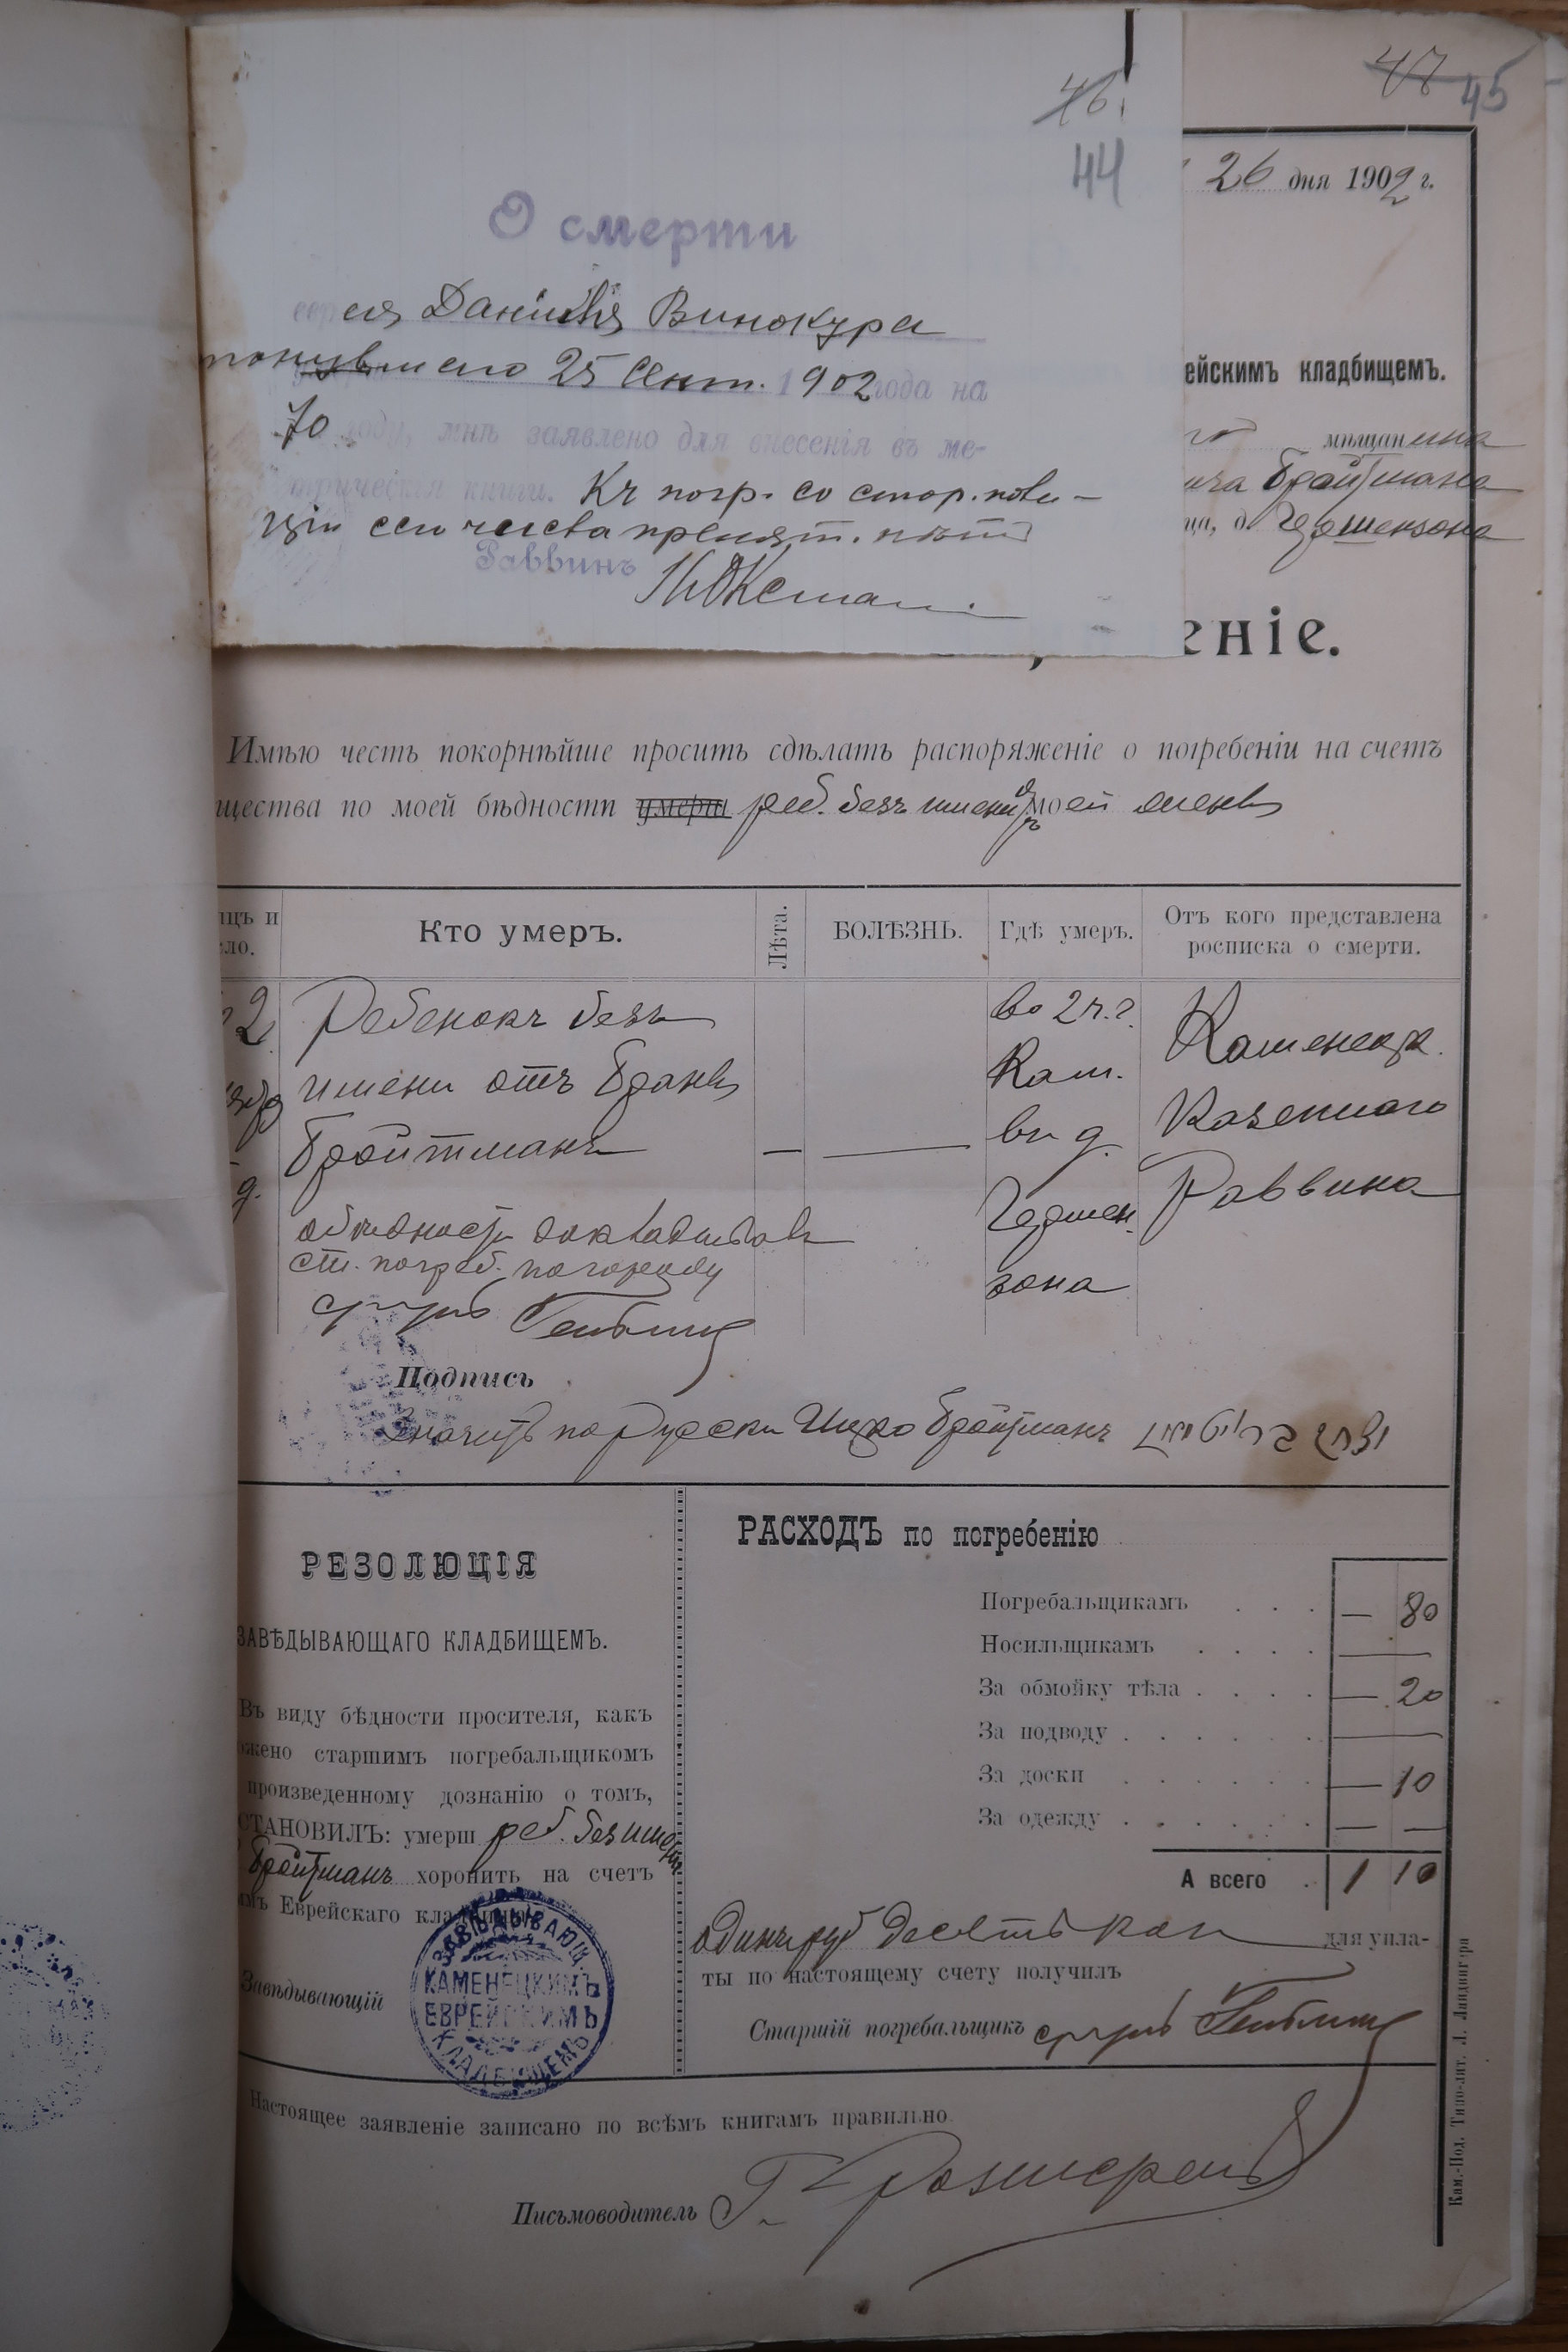 47 45
46.
44
О смерти
Данiиля Винокура
25 Сент. 1902 года на
70 году, мнѣ заявлено для внесенія въ ме-
трическія книги. Къ погр. со стор. поли-
ціи сего числа препят. нѣтъ
Раввинъ
26 дня 1902 г.
ейскимъ кладбищемъ.
мѣщанина
ича Бройтмана
ца, д. Гершензона
еніе.
Имѣю честь покорнѣйше просить сдѣлать распоряженіе о погребеніи на счетъ
щества по моей бѣдности умерш реб. безъ имени моей жены
яцъ и
сло.
Кто умеръ.
Лѣта.
БОЛѢЗНЬ.
Гдѣ умеръ.
Отъ кого представлена
росписка о смерти.
2
Ребенокъ безъ
имени отъ Браны
Бройтманъ
— —
г.
во 2 ч. г.
Кам.
въ д.
Гершен-
зона
Каменецк.
Казеннаго
Раввина
о бѣдности докладывалъ
ст. погреб. по городу
Подпись
Значитъ по Русски Ицко Бройтманъ יצחק ברויטמאן
РЕЗОЛЮЦІЯ
ЗАВѢДЫВАЮЩАГО КЛАДБИЩЕМЪ.
Въ виду бѣдности просителя, какъ
ожено старшимъ погребальщикомъ
произведенному дознанію о томъ,
СТАНОВИЛЪ: умерш реб. безъ имени
Бройтманъ хоронить на счетъ
имъ Еврейскаго кладбища
Завѣдывающій
ЗАВѢДЫВАЮЩ.
КАМЕНЕЦКИМЪ
ЕВРЕЙСКИМЪ
КЛАДБИЩЕМЪ
РАСХОДЪ по погребенію
Погребальщикамъ . . . — 80
Носильщикамъ . . . . —
За обмойку тѣла . . . . — 20
За подводу . . . . . . —
За доски . . . . . . — 10
За одежду . . . . . . — —
А всего . 1 10
одинъ руб десять коп для упла-
ты по настоящему счету получилъ
Старшій погребальщикъ
Настоящее заявленіе записано по всѣмъ книгамъ правильно.
Письмоводитель
Кам.-Под. Типо-лит. Л. Ландвигера